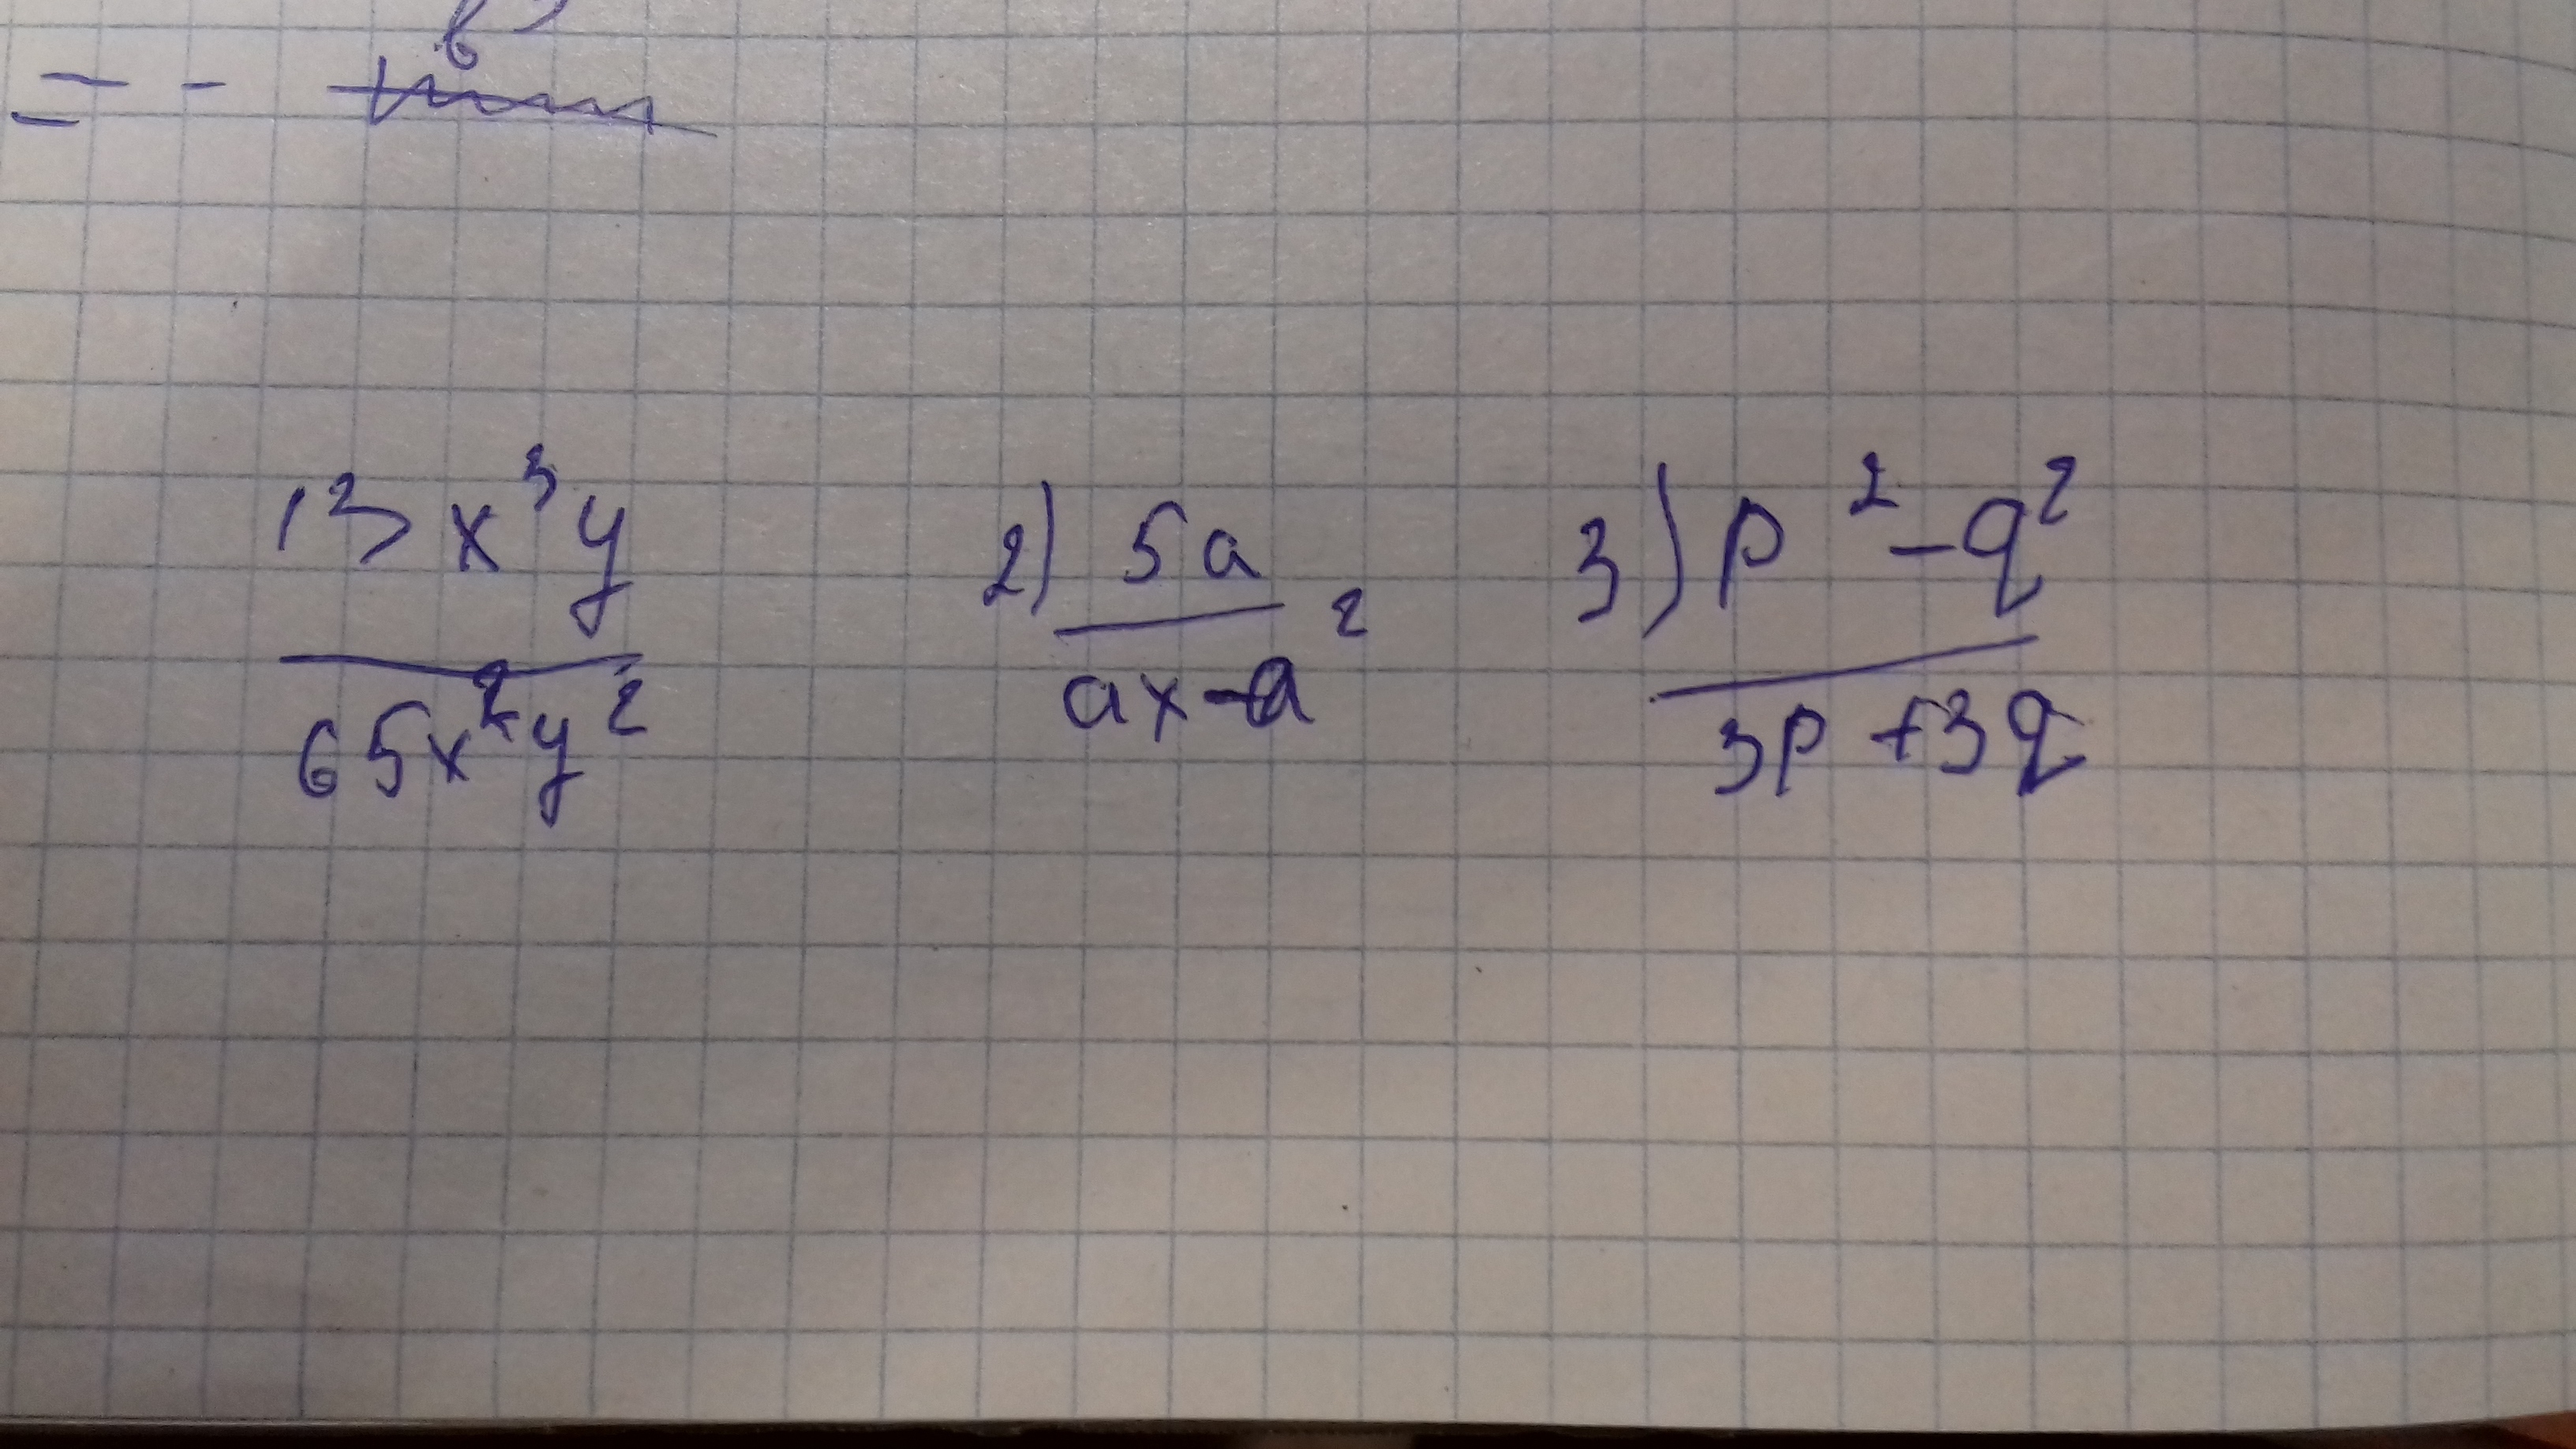 = -
13x³y / 65x²y²
2) 5a / ax-a²
3) p²-q² / 3p+3q